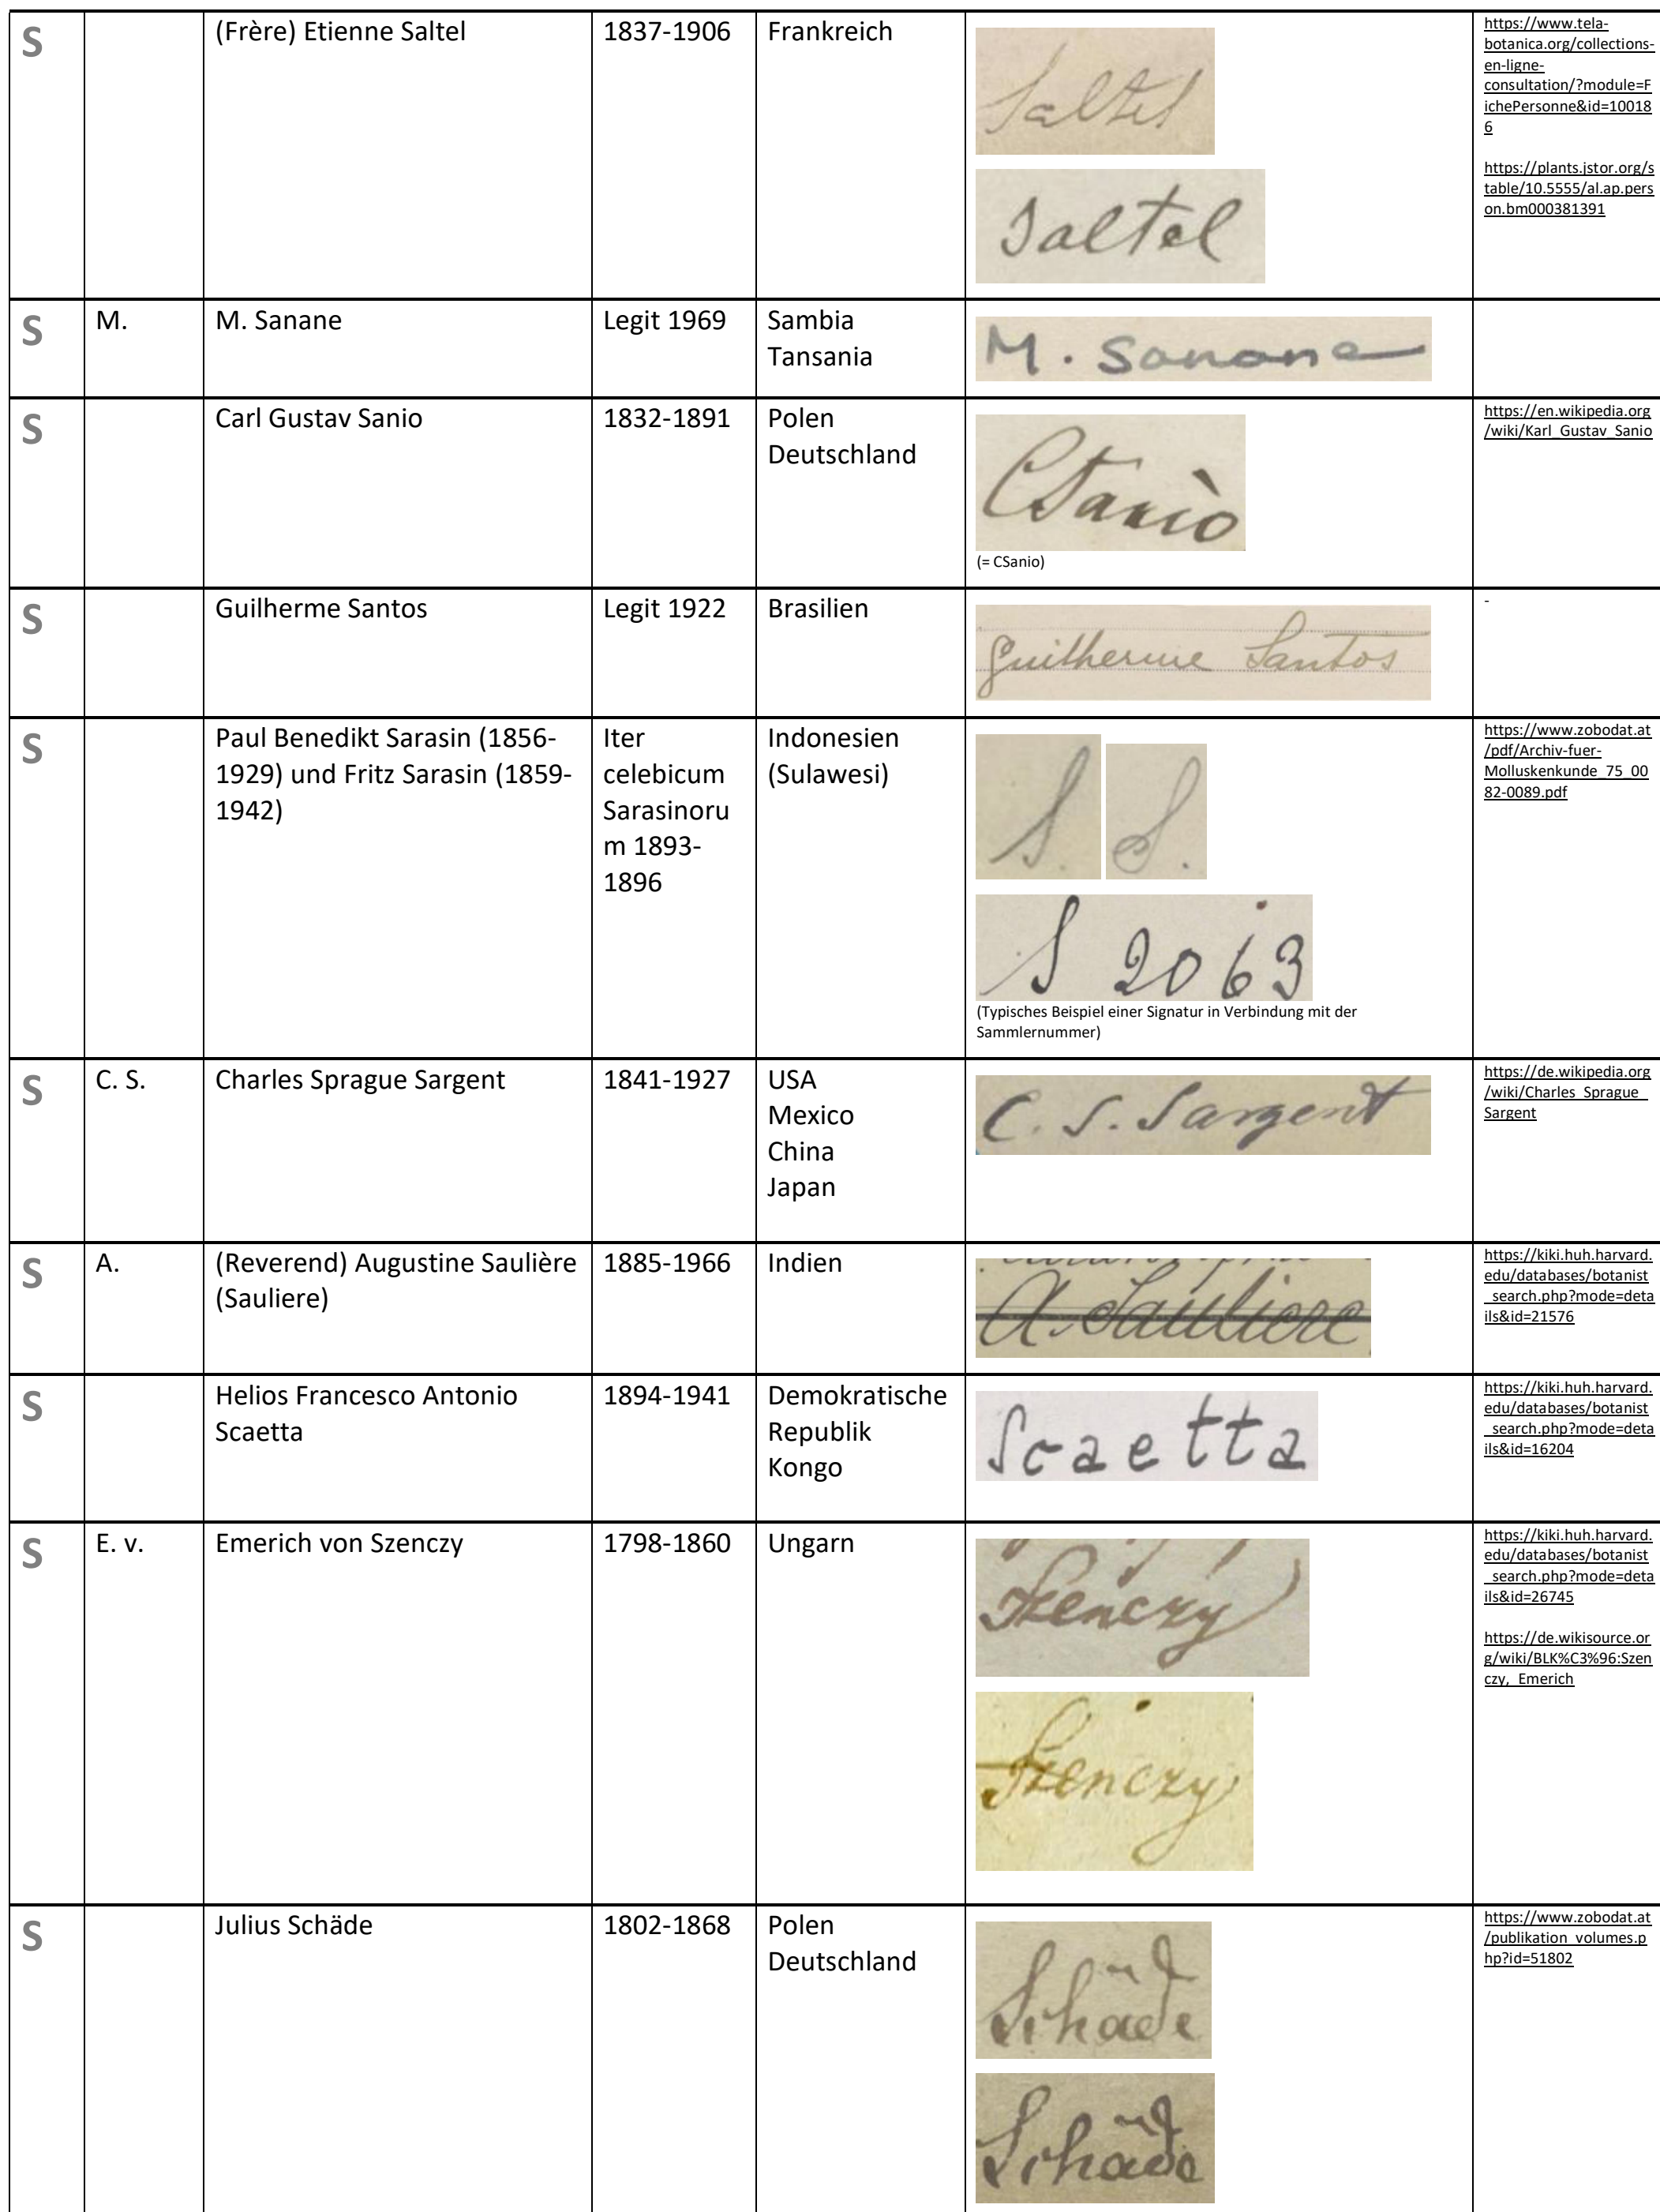 S
(Frère) Etienne Saltel
1837-1906
Frankreich
Saltel
Saltel
https://www.tela-
botanica.org/collections-
en-ligne-
consultation/?module=F
ichePersonne&id=10018
6
https://plants.jstor.org/s
table/10.5555/al.ap.pers
on.bm000381391
S
M.
M. Sanane
Legit 1969
Sambia
Tansania
M. Sanane
S
Carl Gustav Sanio
1832-1891
Polen
Deutschland
CSanio
(= CSanio)
https://en.wikipedia.org
/wiki/Karl_Gustav_Sanio
S
Guilherme Santos
Legit 1922
Brasilien
Guilherme Santos
-
S
Paul Benedikt Sarasin (1856-
1929) und Fritz Sarasin (1859-
1942)
Iter
celebicum
Sarasinoru
m 1893-
1896
Indonesien
(Sulawesi)
S. S.
S 2063
(Typisches Beispiel einer Signatur in Verbindung mit der
Sammlernummer)
https://www.zobodat.at
/pdf/Archiv-fuer-
Molluskenkunde_75_00
82-0089.pdf
S
C. S.
Charles Sprague Sargent
1841-1927
USA
Mexico
China
Japan
C. S. Sargent
https://de.wikipedia.org
/wiki/Charles_Sprague_
Sargent
S
A.
(Reverend) Augustine Saulière
(Sauliere)
1885-1966
Indien
A. Sauliere
https://kiki.huh.harvard.
edu/databases/botanist
_search.php?mode=deta
ils&id=21576
S
Helios Francesco Antonio
Scaetta
1894-1941
Demokratische
Republik
Kongo
Scaetta
https://kiki.huh.harvard.
edu/databases/botanist
_search.php?mode=deta
ils&id=16204
S
E. v.
Emerich von Szenczy
1798-1860
Ungarn
Szenczy
Szenczy
https://kiki.huh.harvard.
edu/databases/botanist
_search.php?mode=deta
ils&id=26745
https://de.wikisource.or
g/wiki/BLK%C3%96:Szen
czy,_Emerich
S
Julius Schäde
1802-1868
Polen
Deutschland
Schäde
Schäde
https://www.zobodat.at
/publikation_volumes.p
hp?id=51802